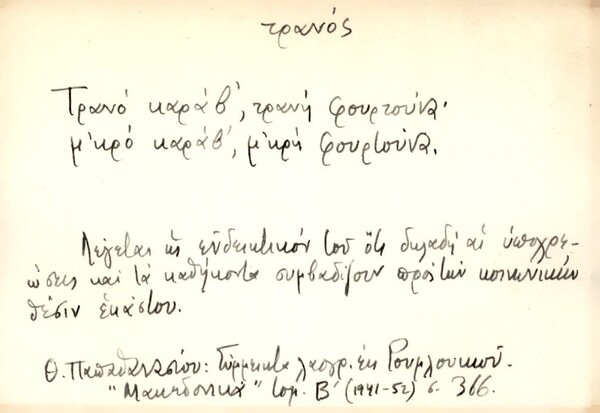 τρανός
Τρανό καράβ', τρανή φουρτούνα·
μ'κρό καράβ', μ'κρή φουρτούνα.
Λέγεται ὡς ἐνδεικτικόν τοῦ ὅτι δηλαδή αἱ ὑποχρε-
ώσεις καί τά καθήκοντα συμβαδίζουν πρός τήν κοινωνικήν
θέσιν ἑκάστου.
Θ. Παπαθανασίου: Σύμμεικτα λαογρ. ἐκ Ρουμλουκιοῦ.
"Μακεδονικά" τομ. Β' (1941-52) σ. 366.